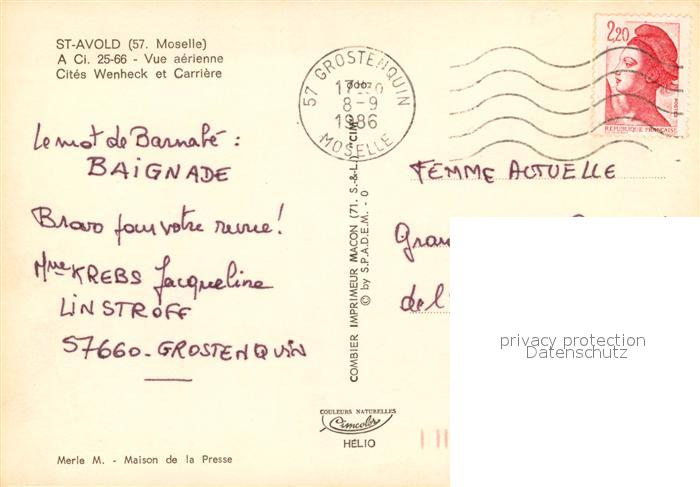 ST-AVOLD (57. Moselle)
A Ci. 25-66 - Vue aérienne
Cités Wenheck et Carrière
57 GROSTENQUIN
8-9
1986
MOSELLE
2,20
REPUBLIQUE FRANÇAISE
Le mot de Barnabé :
BAIGNADE
Bravo pour votre revue !
Mme KREBS Jacqueline
LINSTROFF
57660 - GROSTENQUIN
FEMME ACTUELLE
Gran
del'
COMBIER IMPRIMEUR MACON (71. S.-&-L.) "CIM"
© by S.P.A.D.E.M. - 0
privacy protection
Datenschutz
COULEURS NATURELLES
Cimcolor
HÉLIO
Merle M. - Maison de la Presse